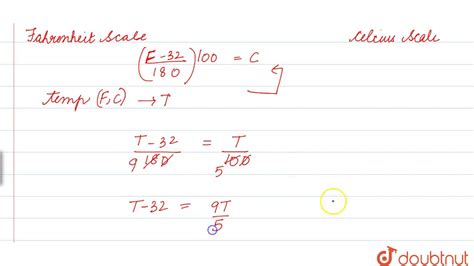 Fahrenheit Scale Celcius Scale
(F-32/180)100 = C
temp (F,C) → T
T-32/180 = T/100
9 5
T-32 = 9T/5
doubtnut